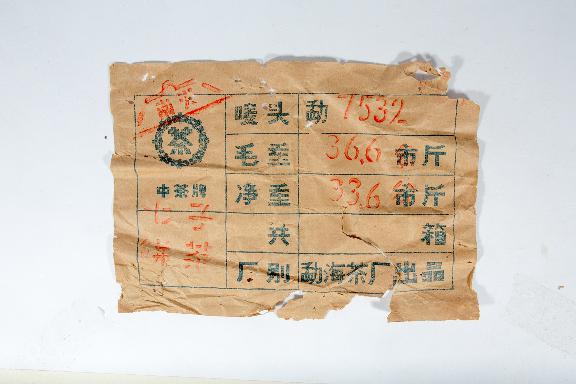 唛头 勐 7532
茶
毛重 36.6 市斤
中茶牌
净重 33.6 市斤
共 箱
厂别 勐海茶厂出品